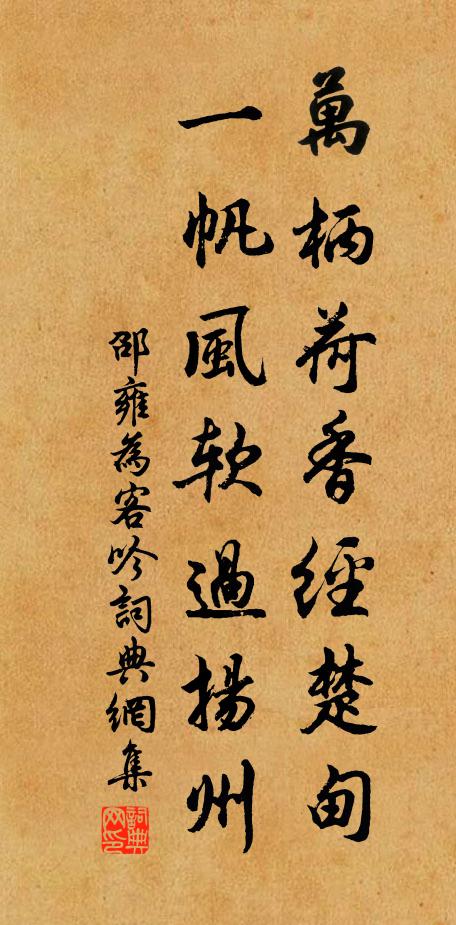 萬柄荷香經楚甸
一帆風软過揚州
邵雍為客吟詞典網集
詞典网印